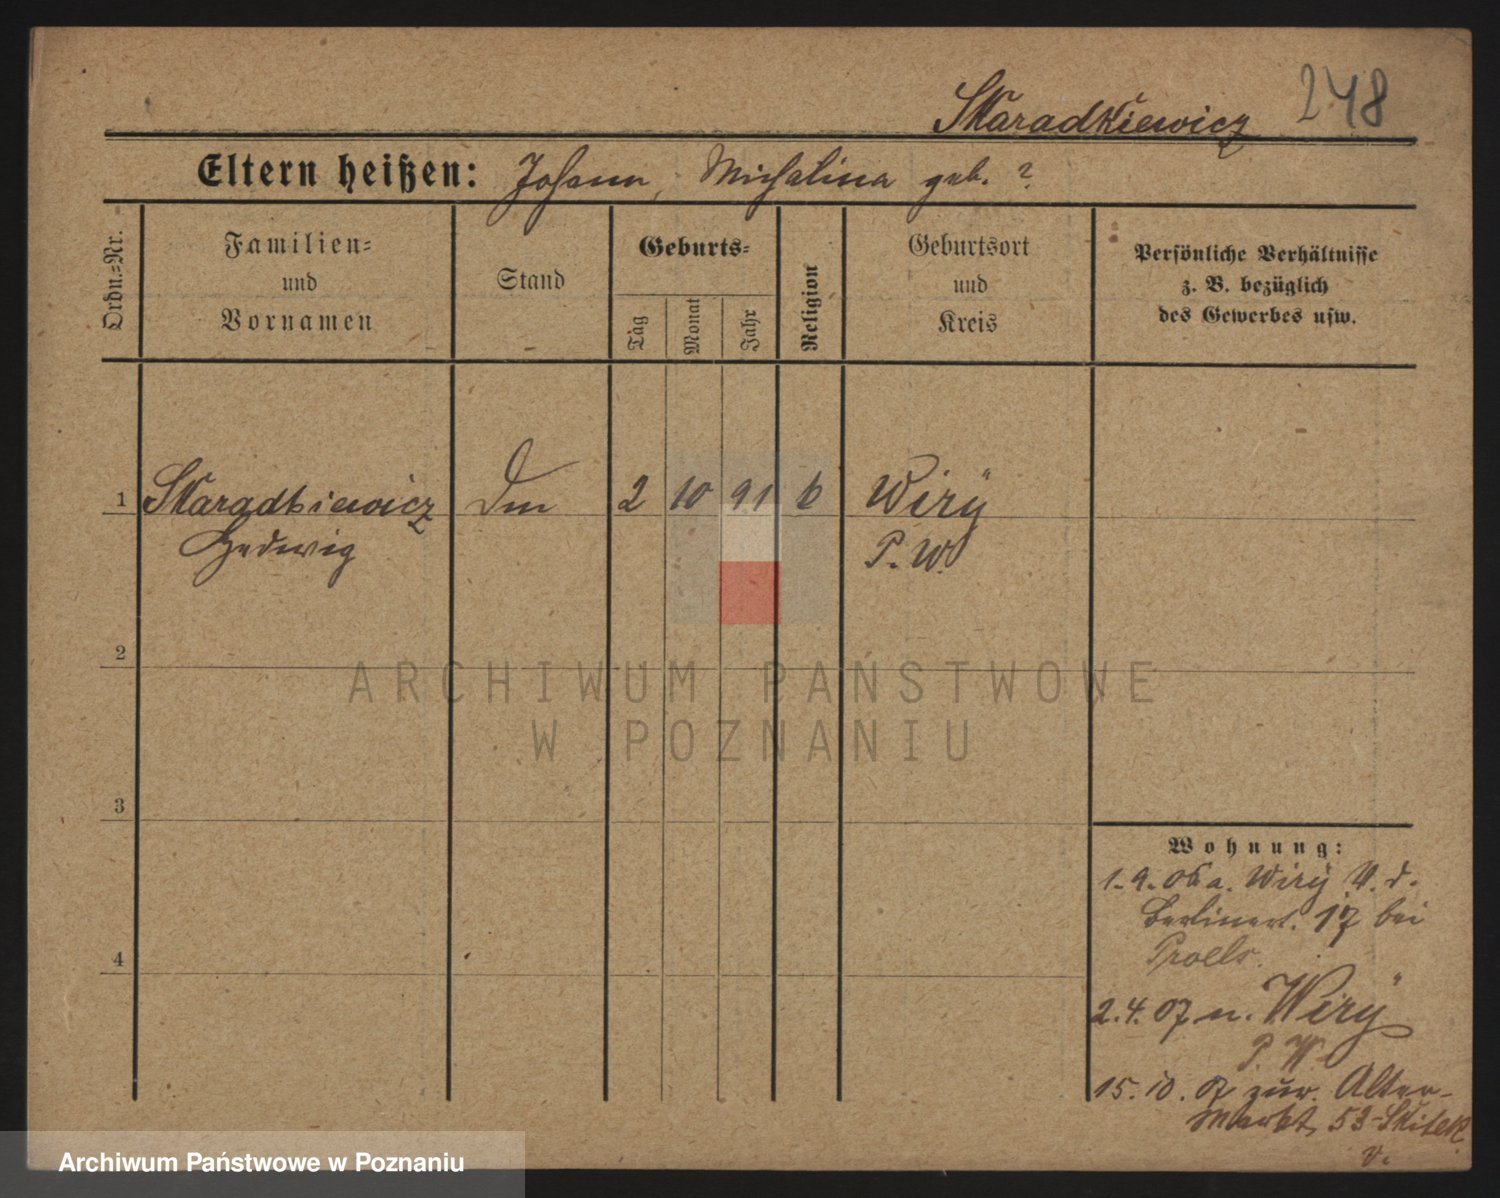 Skaradkiewicz 248
Eltern heißen: Johann, Michalina geb. ?
Ordn.=Nr.
Familien=
und
Vornamen
Stand
Geburts=
Tag
Monat
Jahr
Religion
Geburtsort
und
Kreis
Persönliche Verhältnisse
z. B. bezüglich
des Gewerbes usw.
1 Skaradkiewicz 2 10 91 Wirÿ
Hedwig P. W.
2
3
4
Wohnung:
1.9.06 a. Wirÿ
Berlinerst. 17 bei
2.4.07 n. Wirÿ
P. W.
15.10.07 zur. Alter-
Markt 53 Skitek
v.
ARCHIWUM PAŃSTWOWE
W POZNANIU
Archiwum Państwowe w Poznaniu